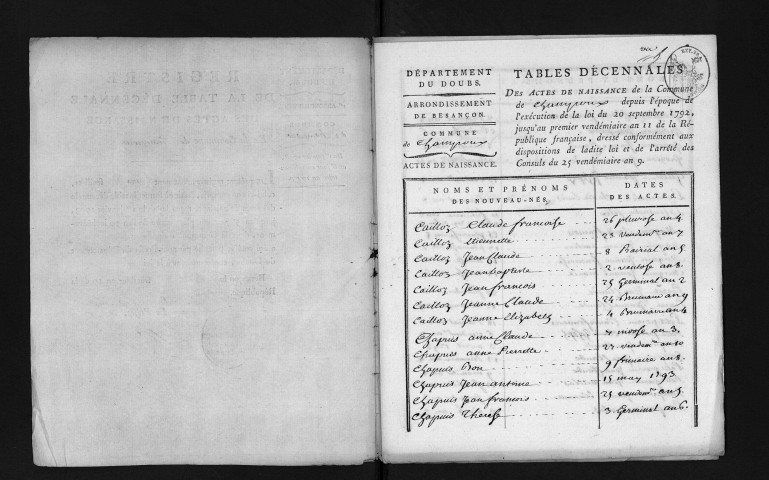 DÉPARTEMENT
DU DOUBS.
ARRONDISSEMENT
DE BESANÇON.
COMMUNE
de Champoux
ACTES DE NAISSANCE.
TABLES DÉCENNALES
DES ACTES DE NAISSANCE de la Commune
de Champoux depuis l'époque de
l'exécution de la loi du 20 septembre 1792,
jusqu'au premier vendémiaire an 11 de la Ré-
publique française, dressé conformément aux
dispositions de ladite loi et de l'arrêté des
Consuls du 25 vendémiaire an 9.
NOMS ET PRÉNOMS
DES NOUVEAU-NÉS.
DATES
DES ACTES.
Cailloz Claude francoise 26 pluviose an 4.
Cailloz Etiennette 23 vendem. an 7
Cailloz Jean Claude 8 Prairial an 5
Cailloz Jean baptiste 2 ventose an 8.
Cailloz Jean francois 25 Germinal an 2
Cailloz Jeanne Claude 24 Brumaire an 9
Cailloz Jeanne Elizabeth 4 Brumaire an 4
Chapuis anne Claude nivose an 3.
Chapuis anne Pierrette 23 vendem. an 10
Chapuis Bon 9 frimaire an 8.
Chapuis Jean antoine 15 may 1793
Chapuis Jean francois 25 vendem. an 5.
Chapuis Therese 3 Germinal an 6.